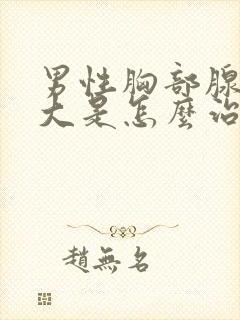 男性胸部腺
大是怎麼治
趙無名